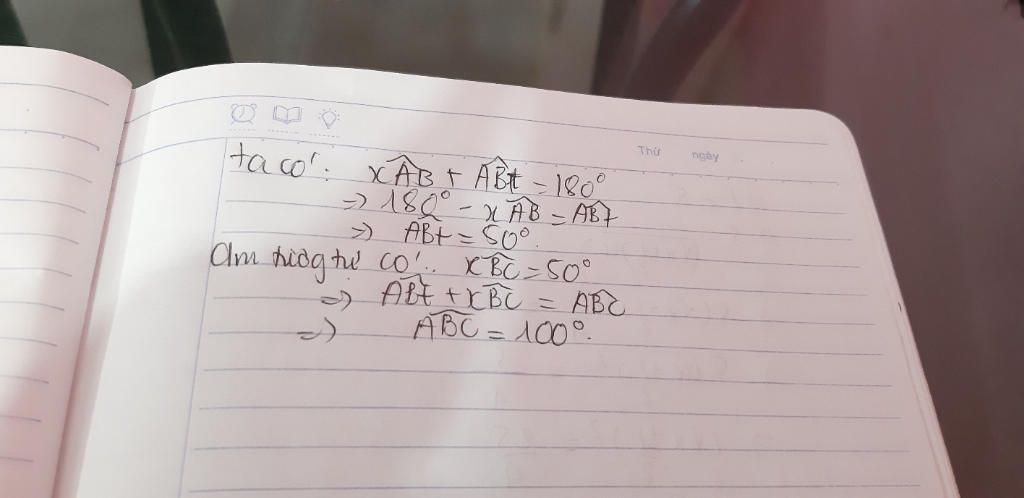 Thứ ngày
ta có: xAB + ABt = 180°
=> 180° - xAB = ABt
=> ABt = 50°.
Cm tương tự có: xBC = 50°
=> ABt + xBC = ABC
=> ABC = 100°.